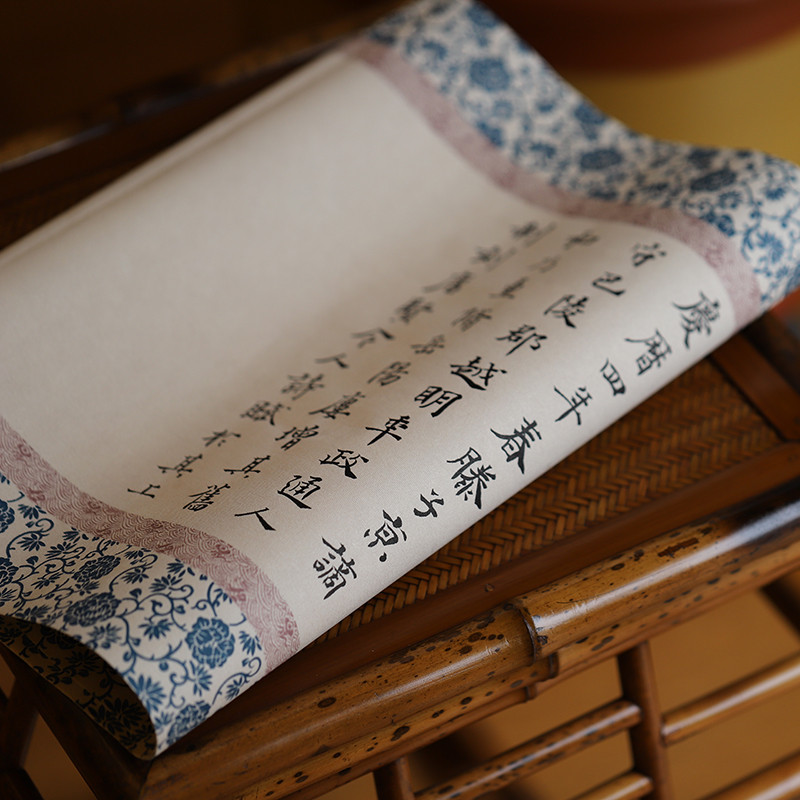 慶曆四年春滕子京謫
守巴陵郡越明年政通人
乃重脩岳陽樓增其舊
制刻唐賢今人詩賦於其上